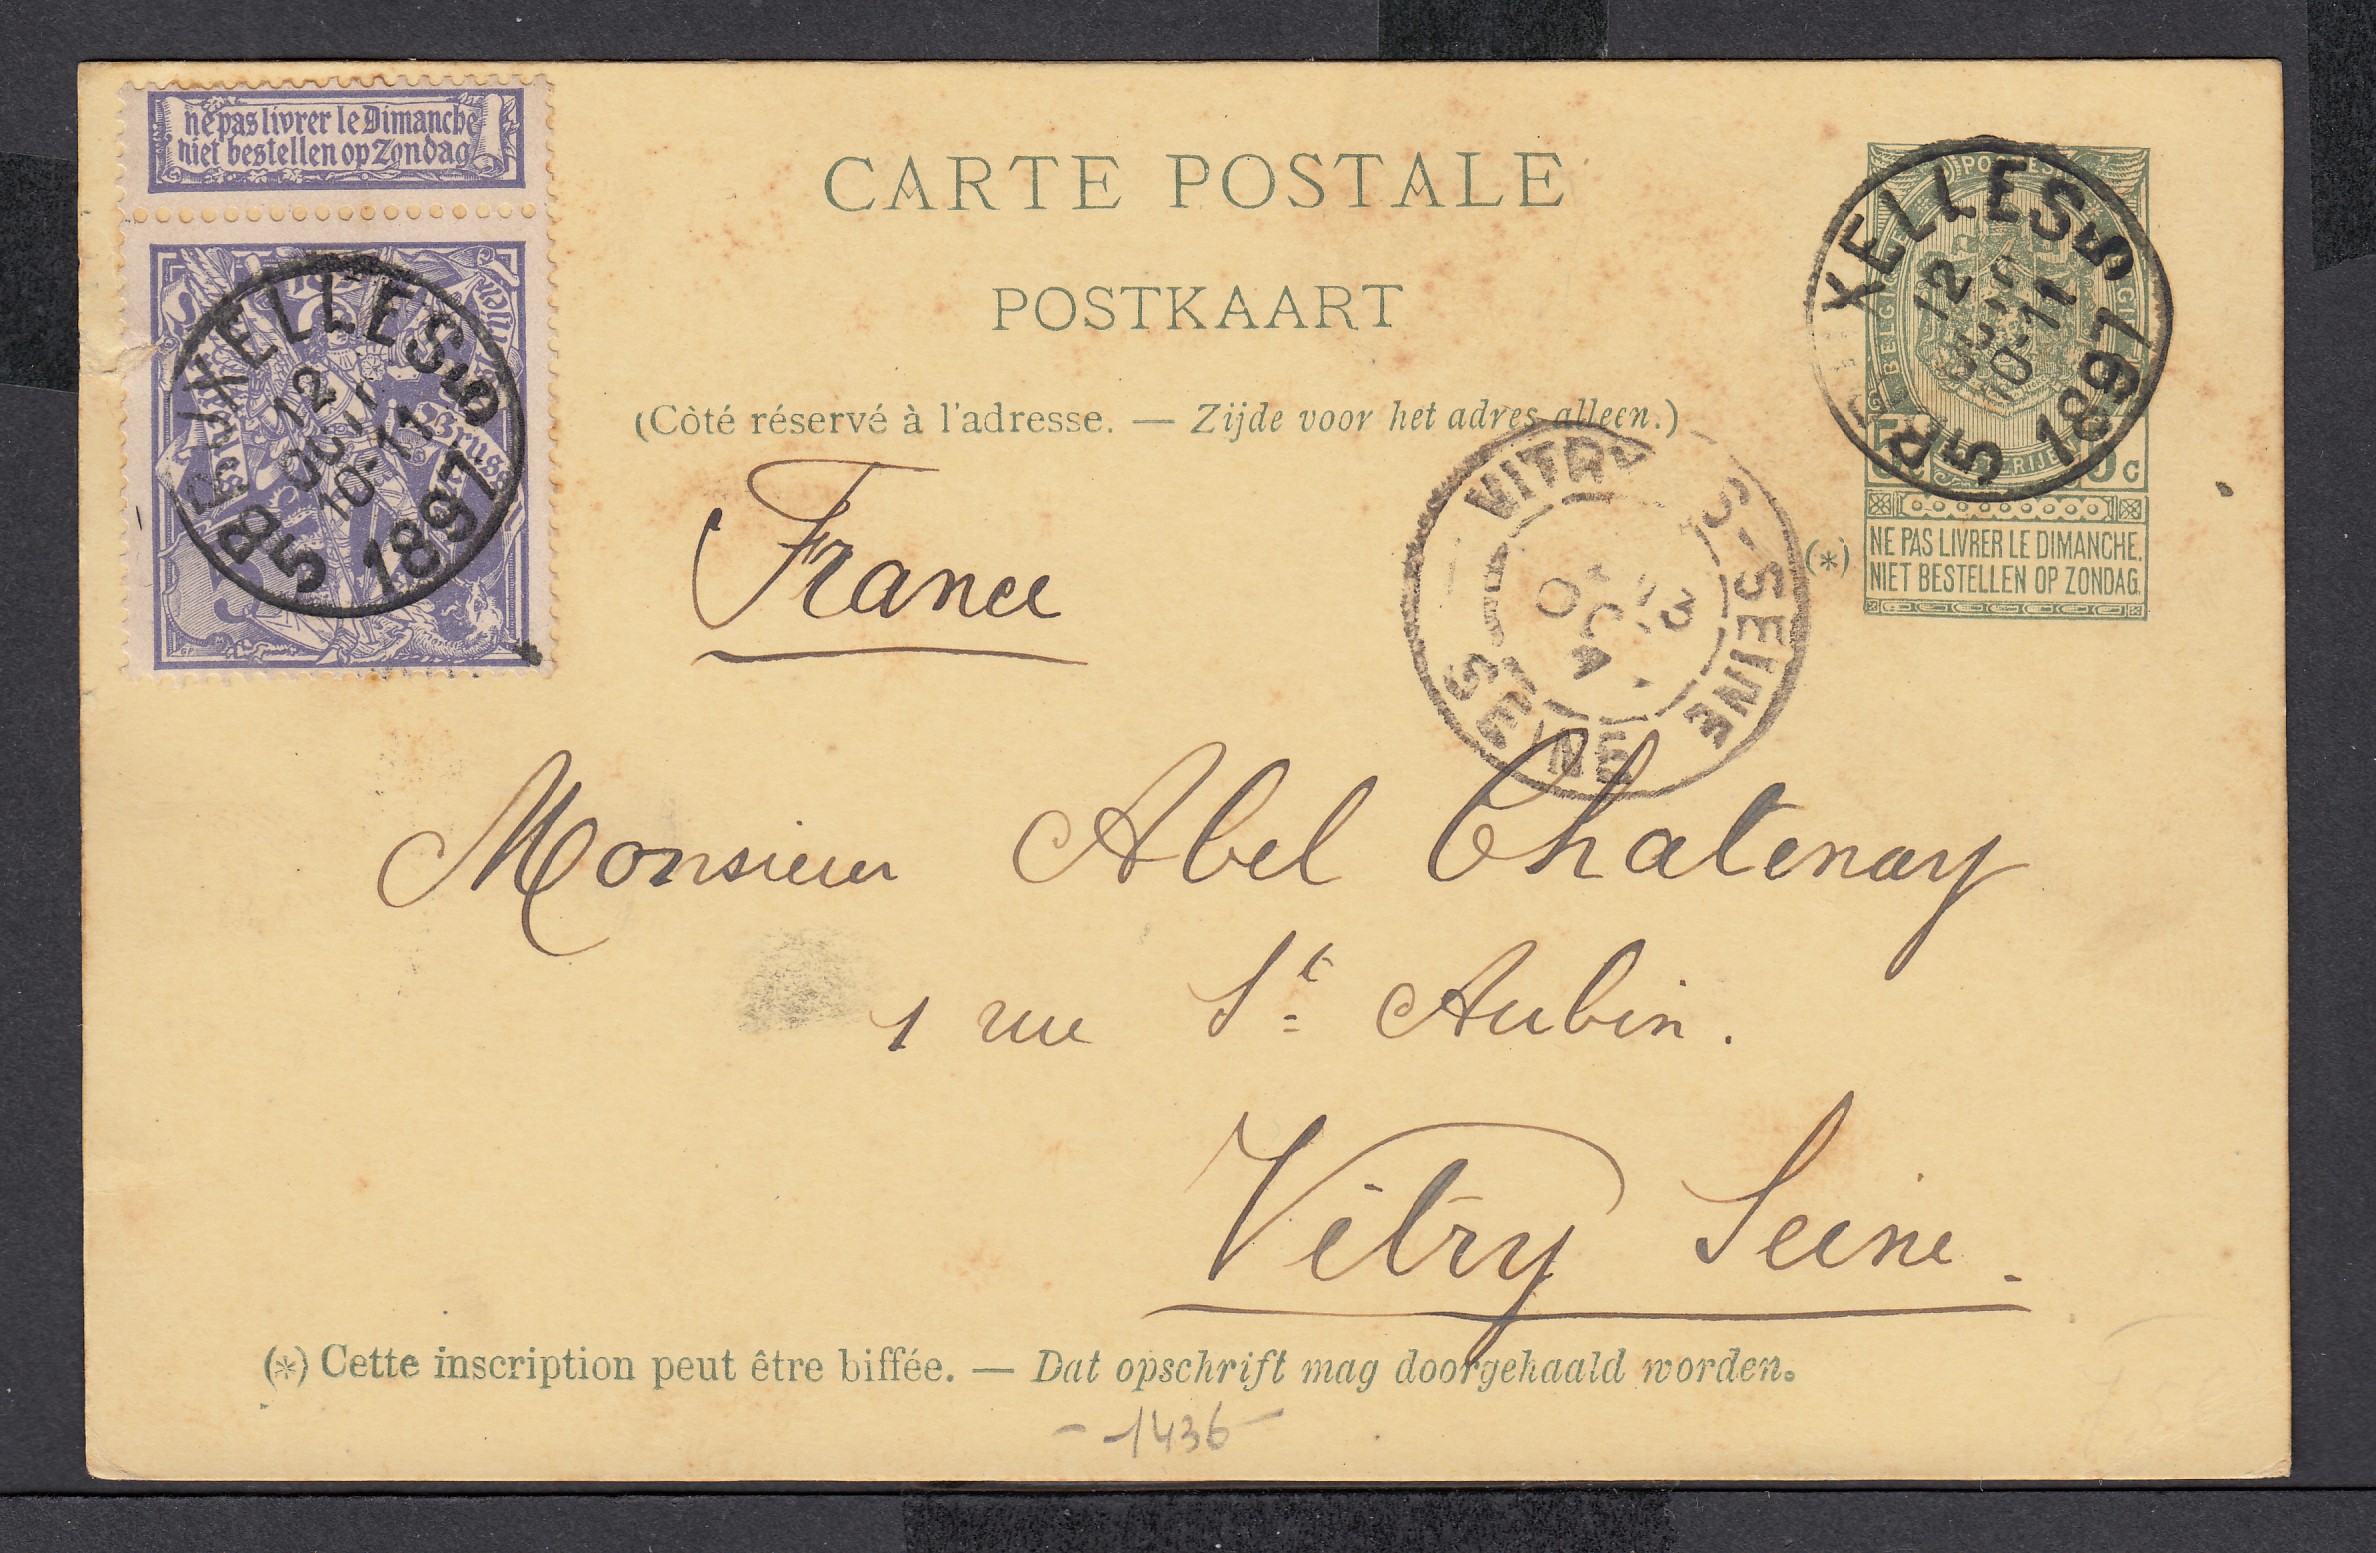 ne pas livrer le Dimanche
niet bestellen op Zondag
BRUXELLES 5
12
OCT
10-11
1897
5
Brux
5
CARTE POSTALE
POSTKAART
(Côté réservé à l'adresse. — Zijde voor het adres alleen.)
POSTES
BRUXELLES 5
12
OCT
10-11
1897
5
BELGI
C
(*)
NE PAS LIVRER LE DIMANCHE.
NIET BESTELLEN OP ZONDAG.
VITRY S-SEINE
13
OCT
SEINE
France
Monsieur Abel Chatenay
1 rue St Aubin.
Vitry Seine.
(*) Cette inscription peut être biffée. — Dat opschrift mag doorgehaald worden.
- 1436 -